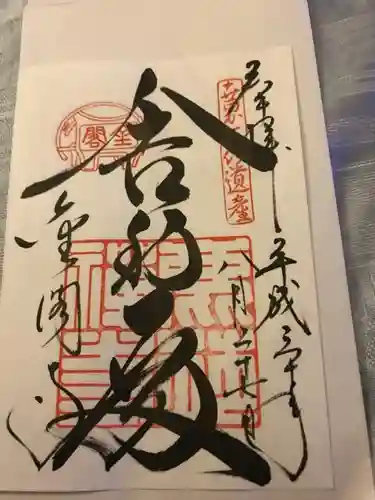 奉拝
平成三十年
八月二十 日
世界文化遺産
舎利殿
金閣
鹿苑禅寺
金閣寺